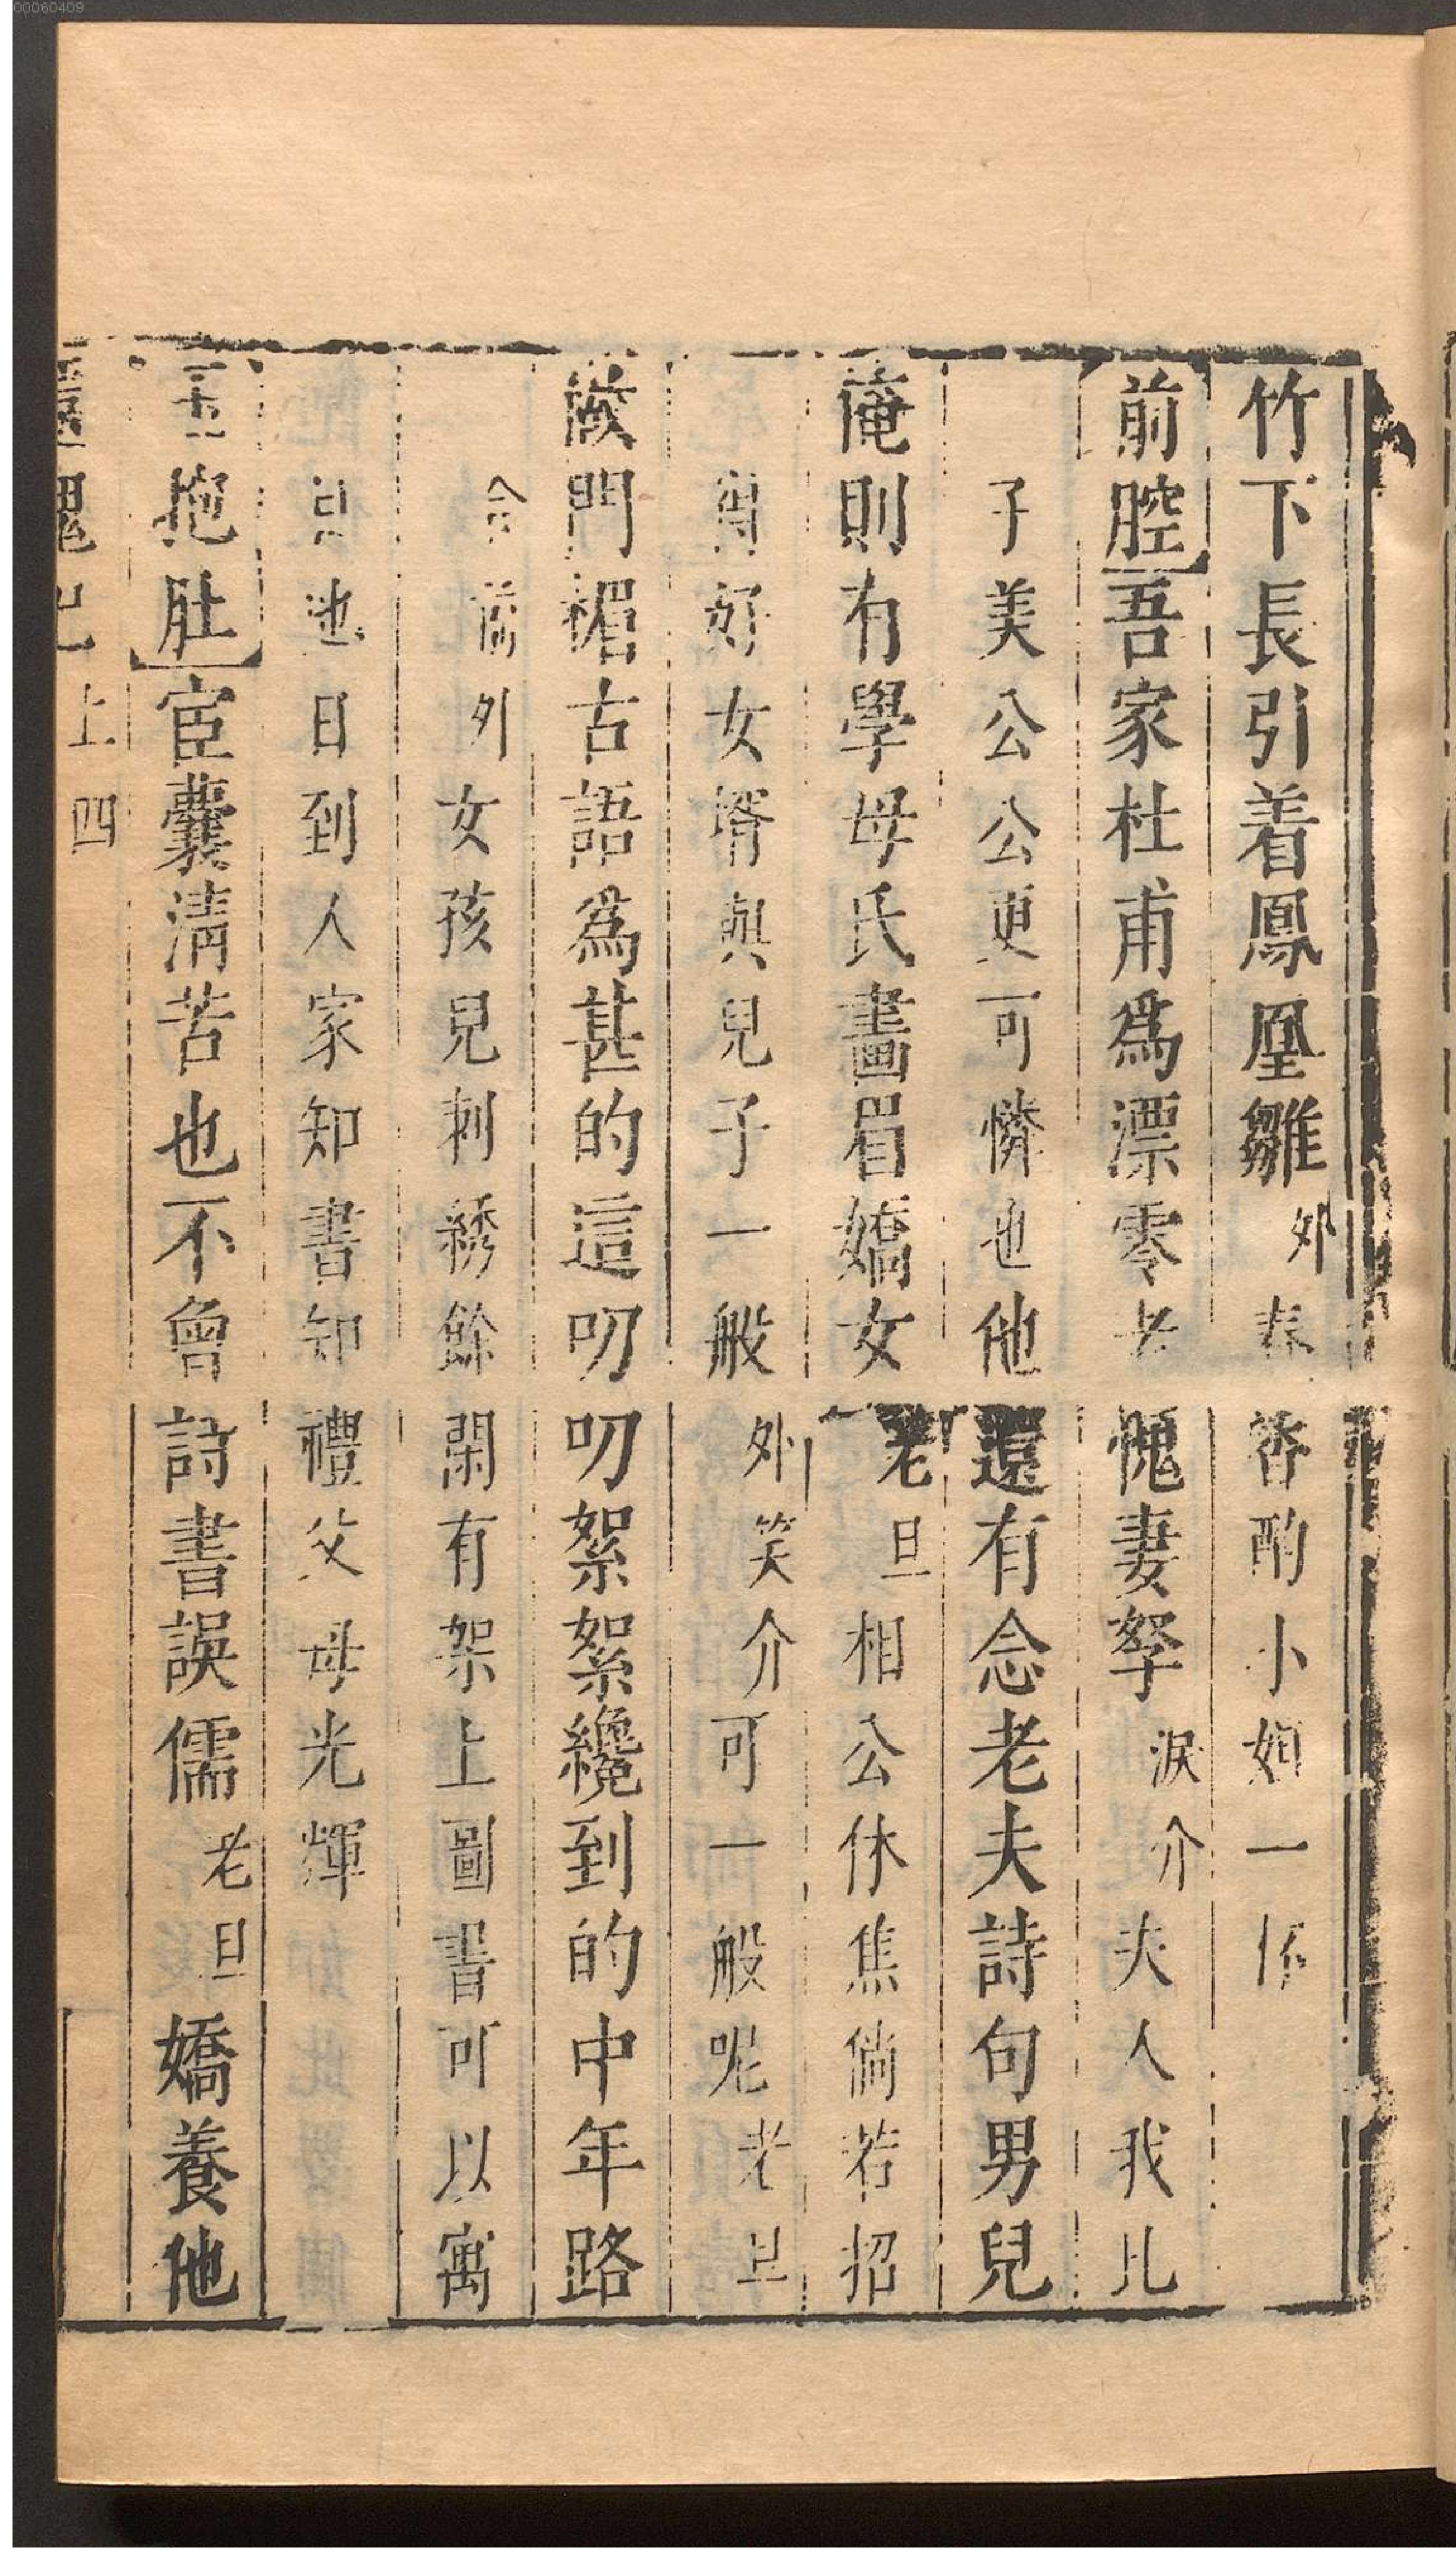 00060409
竹下長引着鳳凰雛外春香酌小姐一杯
前腔吾家杜甫爲漂零老愧妻孥淚介夫人我比
子美公公更可憐也他還有念老夫詩句男兒
俺則有學母氏畫眉嬌女老旦相公休焦倘若招
得好女壻與兒子一般外笑介可一般呢老旦
做門楣古語爲甚的這叨叨絮絮纔到的中年路
外女孩兒刺綉餘閑有架上圖書可以寓
日到人家知書知禮父母光輝
玉抱肚宦囊清苦也不曾詩書誤儒老旦嬌養他
還魂記上 四